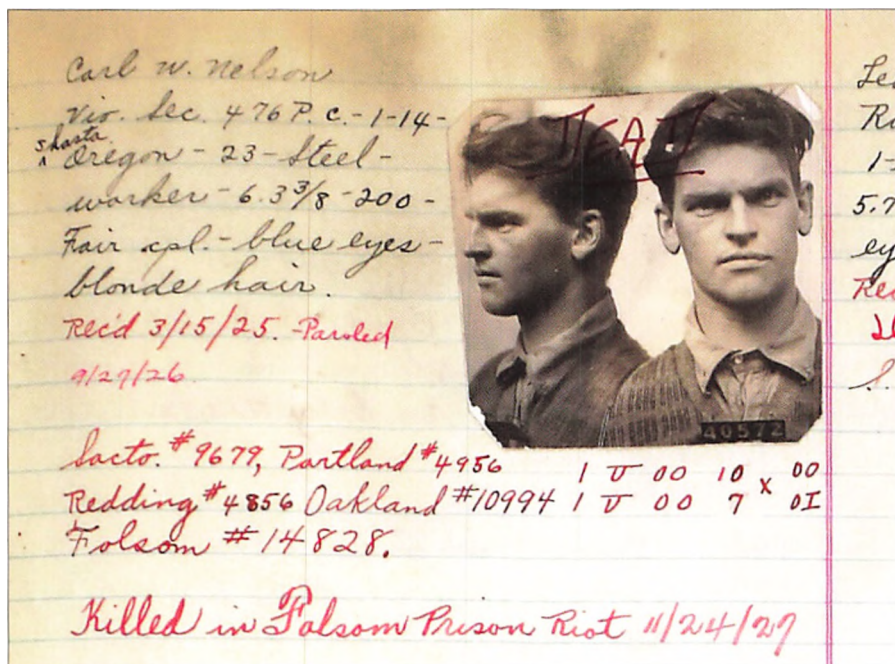 Carl W. Nelson
Vio. Sec. 476 P.C. - 1-14 -
Shasta
Oregon - 23 - Steel-
worker - 6.3 3/8 - 200 -
Fair cpl. - blue eyes -
blonde hair.
Rec'd 3/15/25. - Paroled
9/27/26.
DEAD
40572
Sacto. #9679, Portland #4956
Redding #4856 Oakland #10994
Folsom #14828.
1 U 00 10 x 00
1 U 00 7 0I
Killed in Folsom Prison Riot 11/24/27
Ri
1-
5.7
ey
Rec